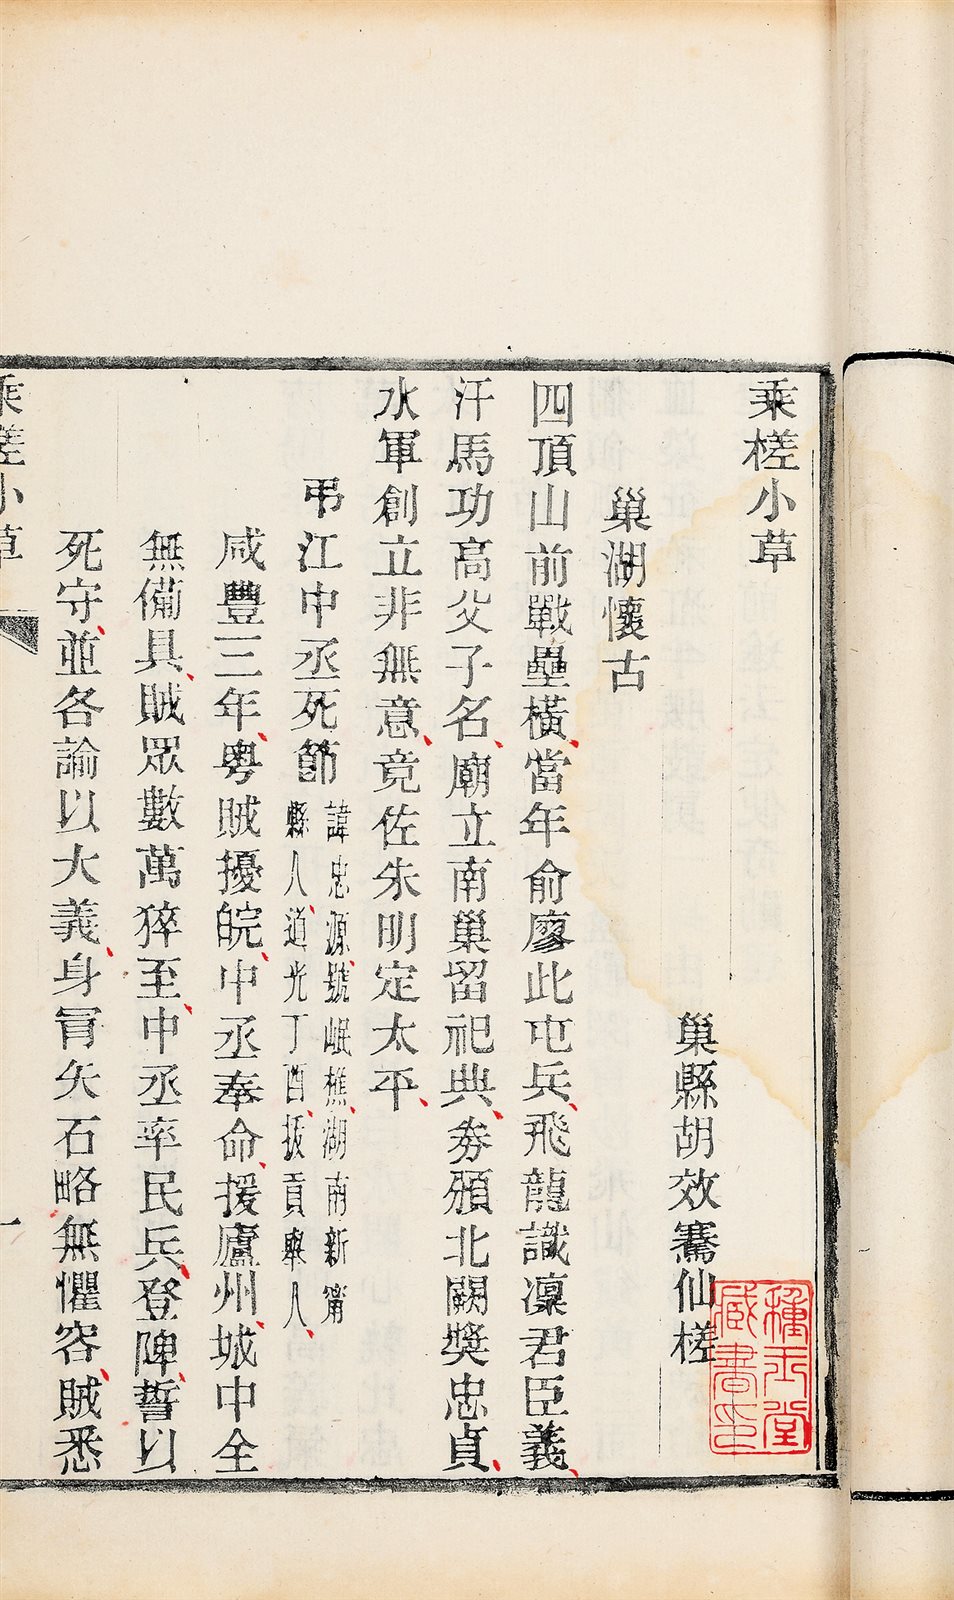 乘槎小草
巢縣胡效騫仙槎
巢湖懷古
四頂山前戰壘橫當年俞廖此屯兵飛龍識凜君臣義
汗馬功高父子名廟立南巢留祀典券頒北闕獎忠貞
水軍創立非無意竟佐朱明定太平
弔江中丞死節諱忠源號岷樵湖南新甯
縣人道光丁酉拔貢舉人
咸豐三年粵賊擾皖中丞奉命援廬州城中全
無備具賊眾數萬猝至中丞率民兵登陴誓以
死守並各諭以大義身冒矢石略無懼容賊悉
乘槎小草
一
種玉堂
藏書印